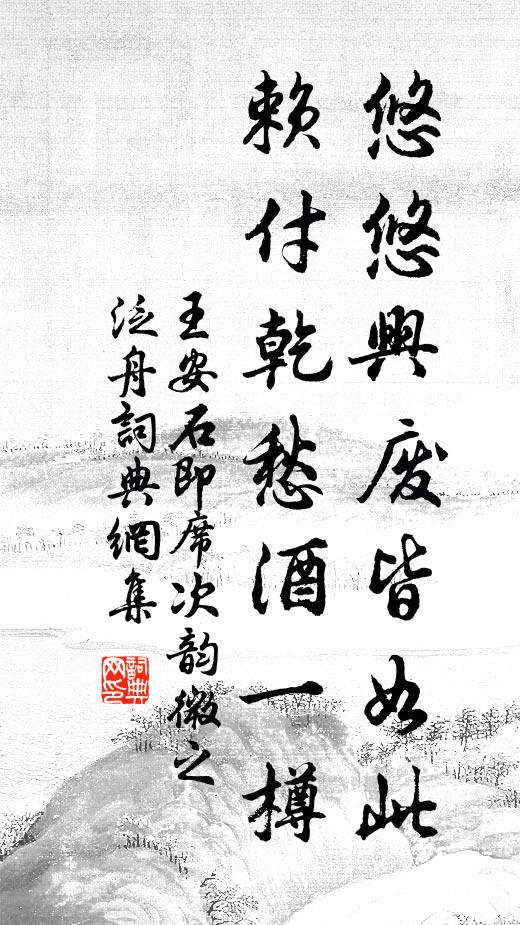 悠悠興废皆如此
赖付乾愁酒一樽
王安石即席次韵微之
泛舟詞典網集
詞典网印